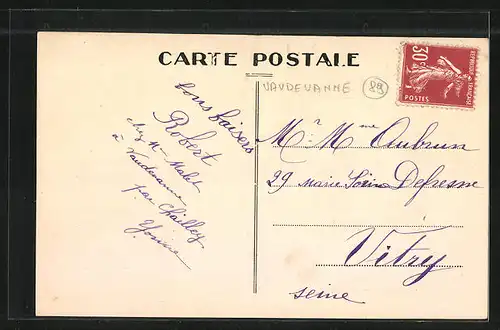 CARTE POSTALE
VAUDEVANNE 89
30c
REPUBLIQUE FRANÇAISE
POSTES
bons baisers
Robert
chez Mr Malet
à Vaudevanne
par Chailley
Yonne
Mr Mme Aubrun
29 Marie Defresne
Vitry
Seine